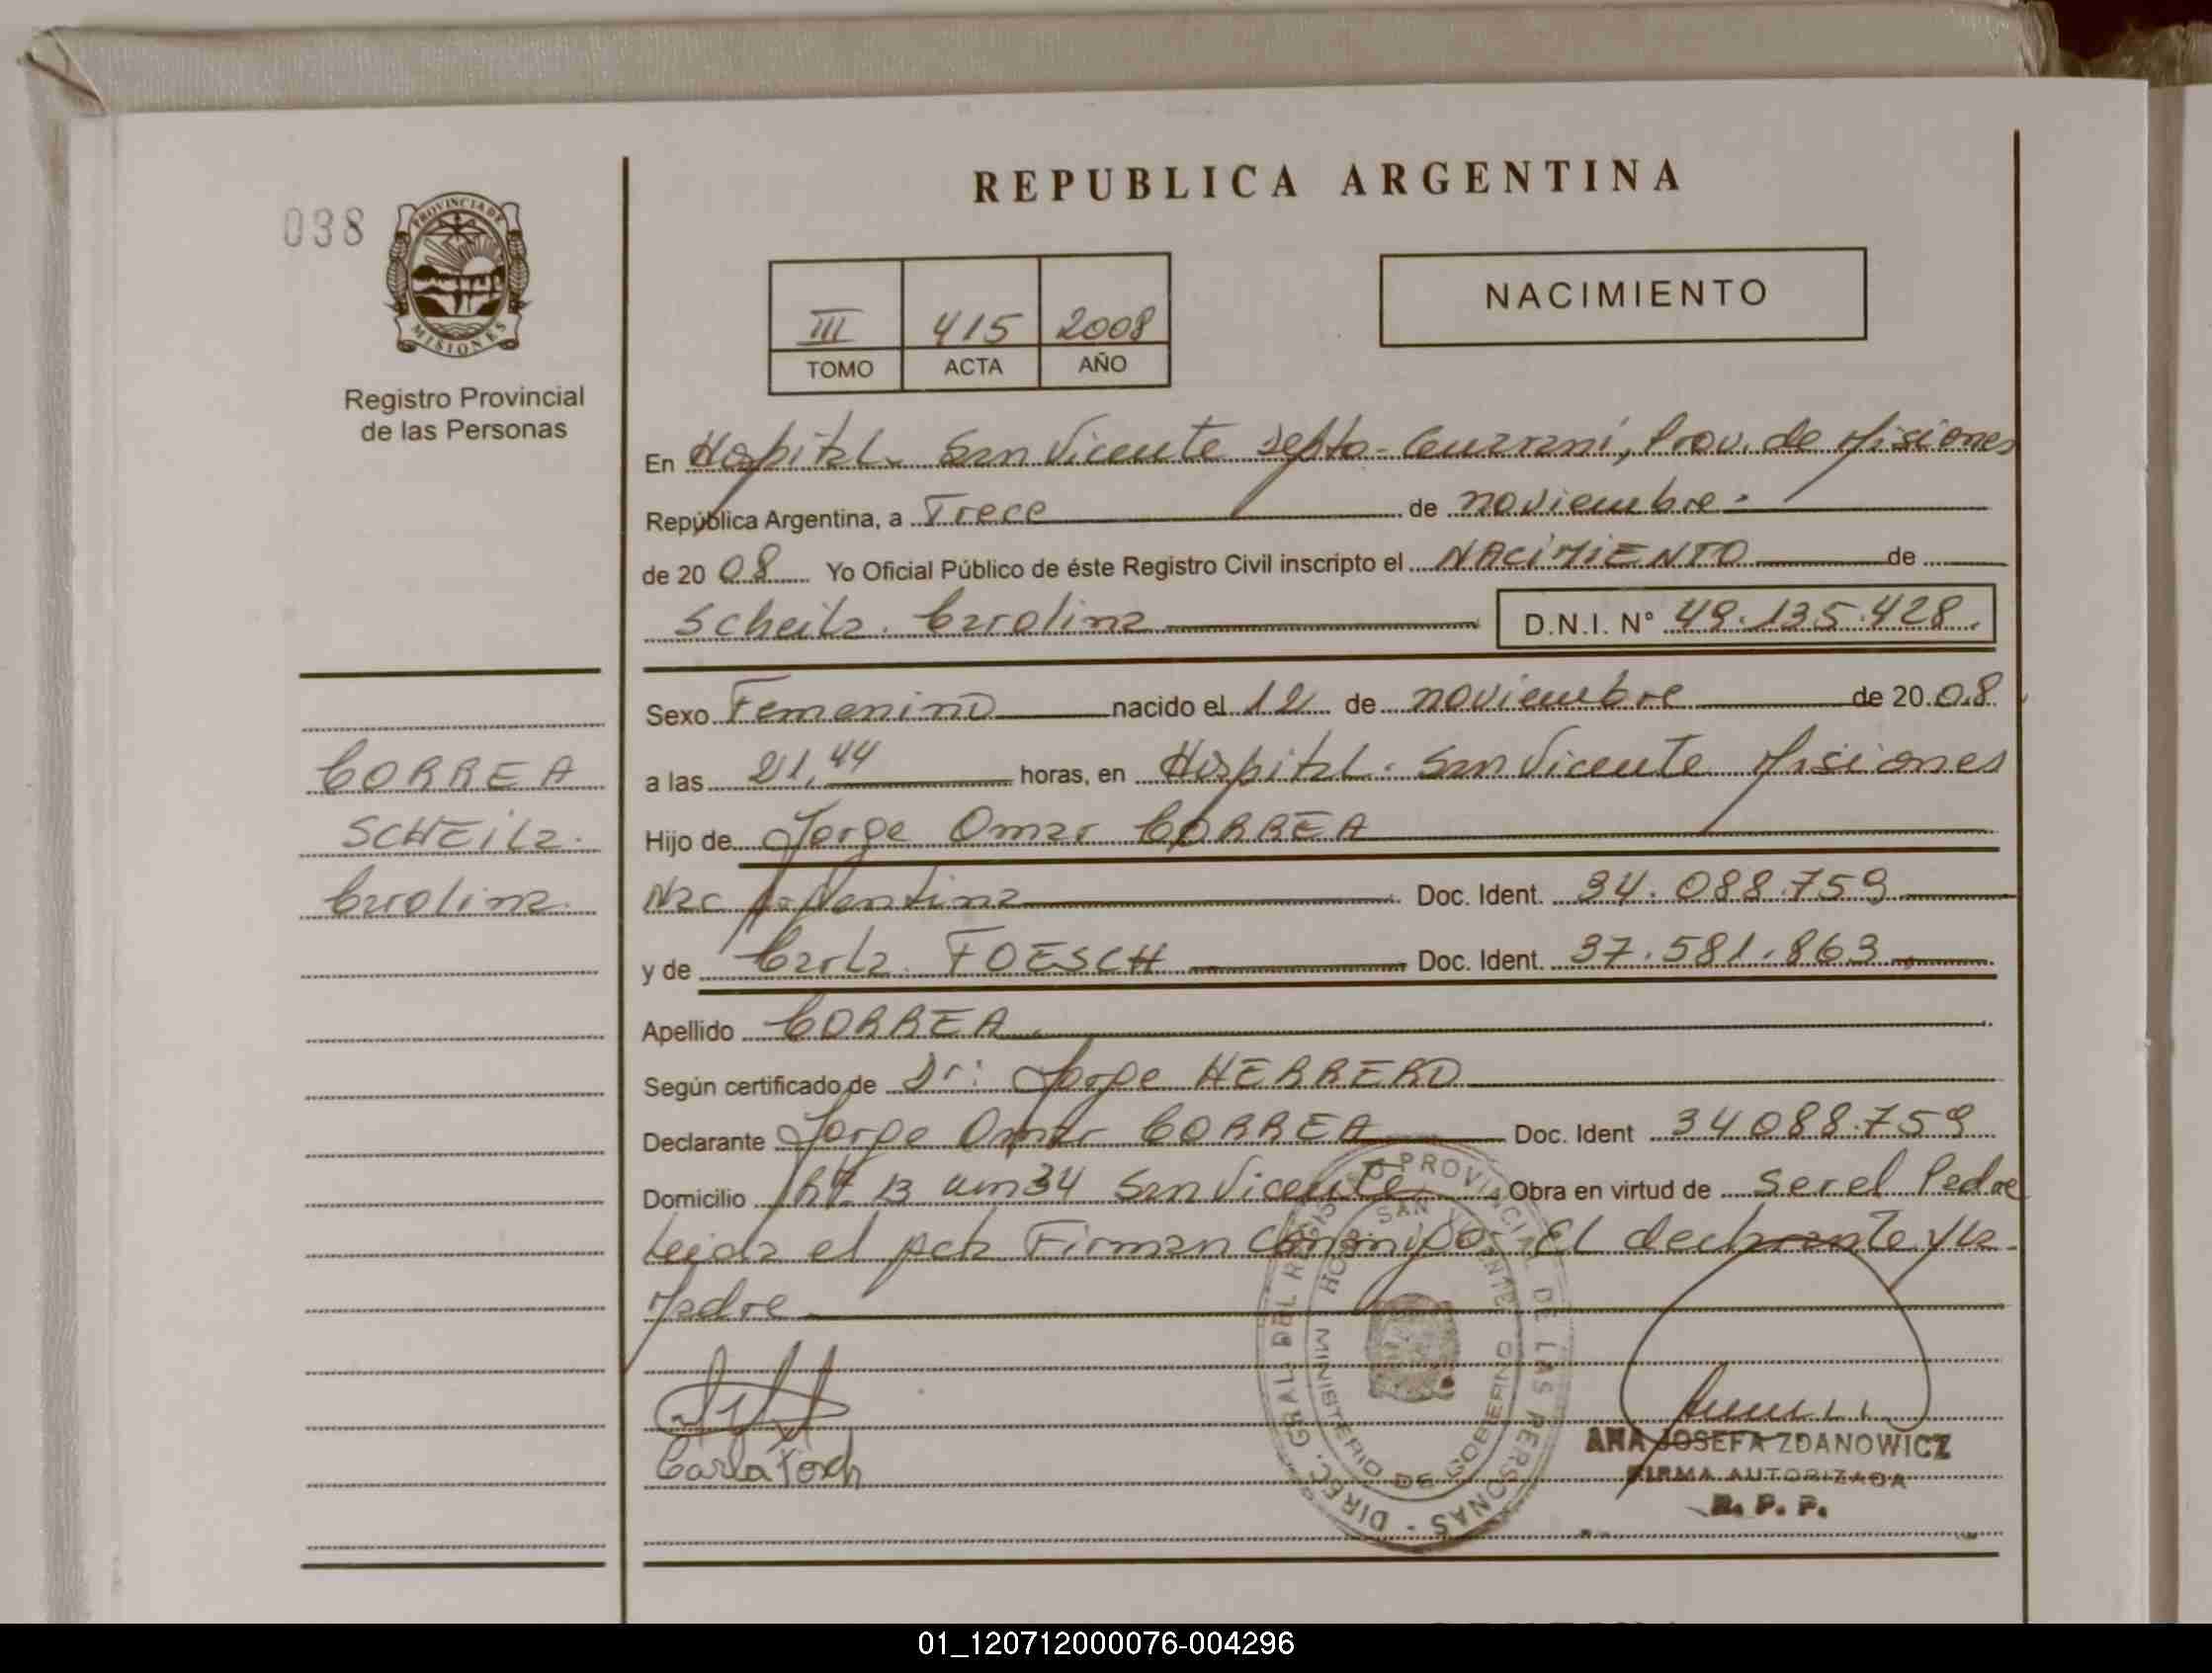 REPUBLICA ARGENTINA
038
PROVINCIA DE
MISIONES
Registro Provincial
de las Personas
III 415 2008
TOMO ACTA AÑO
NACIMIENTO
En Hospital San Vicente Depto. Guaraní, Prov. de Misiones
República Argentina, a Trece de noviembre.
de 2008 Yo Oficial Público de éste Registro Civil inscripto el NACIMIENTO de
Scheila Carolina D.N.I. N° 49.135.428.
Sexo Femenino nacido el 12 de noviembre de 2008
a las 21,44 horas, en Hospital San Vicente Misiones
Hijo de Jorge Omar CORREA
Nac Argentina Doc. Ident. 34.088.759
y de Carla FOESCH Doc. Ident. 37.581.863
Apellido CORREA
Según certificado de Dr: Jorge HERRERO
Declarante Jorge Omar CORREA Doc. Ident 34088.759
Domicilio 13 Km 34 San Vicente Obra en virtud de ser el Padre
Leida el Acta Firman Conmigo El declarante y la
Madre
CORREA
SCHEILA
Carolina
Carla Foech
DIREC. GRAL. DEL REGISTRO PROVINCIAL DE LAS PERSONAS
HOSP. SAN VICENTE
MINISTERIO DE GOBIERNO
ANA JOSEFA ZDANOWICZ
FIRMA AUTORIZADA
R. P. P.
01_120712000076-004296